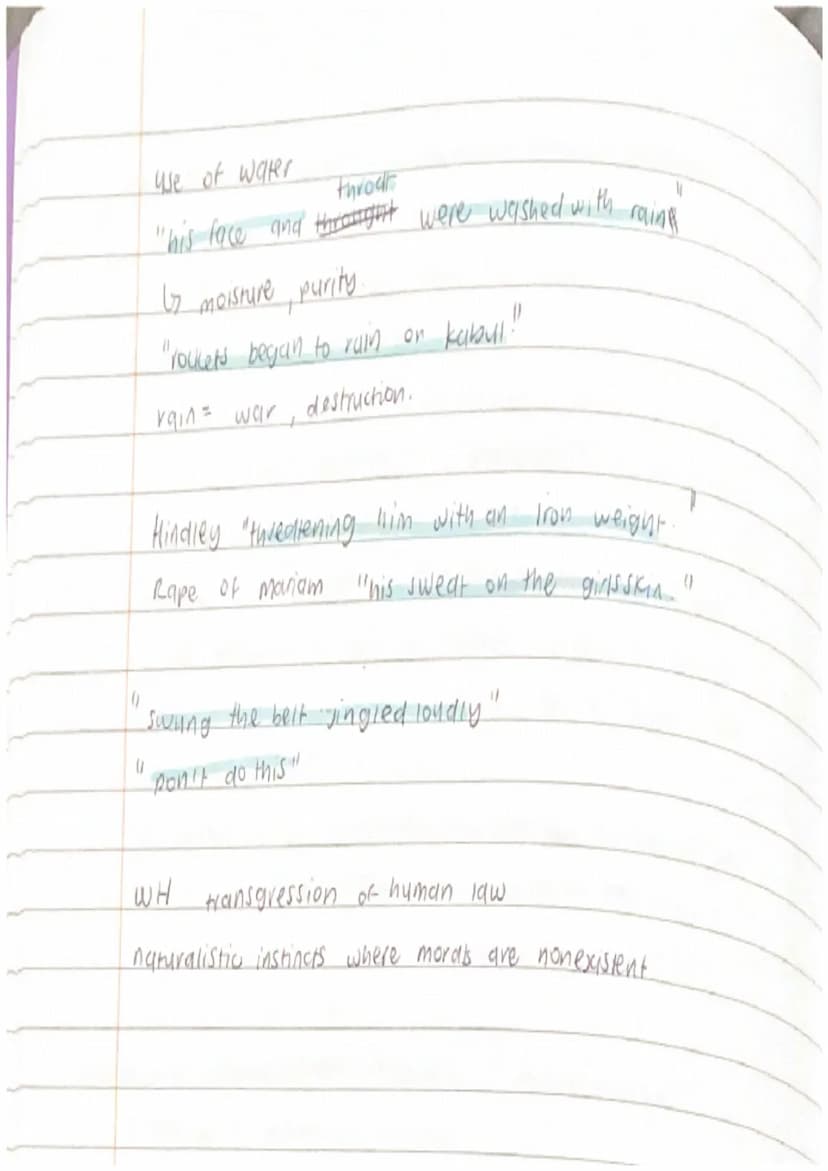 use of water
throat
"his face and throught were washed with rain"
↳ moisture, purity.
"rockets began to rain on kabul."
rain = war, destruction.
Hindley "threatening him with an Iron weight."
Rape of mariam "his sweat on the girls skin."
"swung the belt jingled loudly"
"Don't do this"
WH transgression of human law
naturalistic instincts where morals are nonexistent